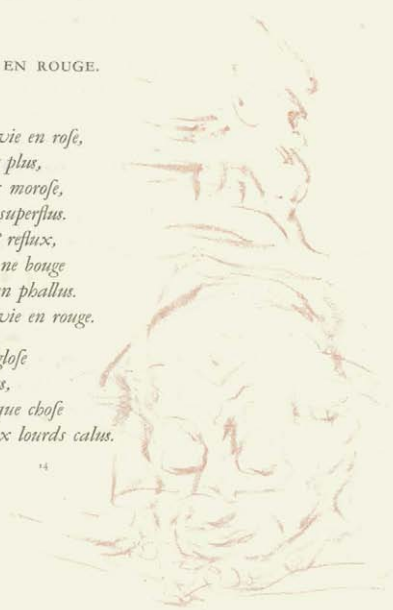 EN ROUGE.
vie en roſe,
plus,
moroſe,
superflus.
reflux,
ne bouge
n phallus.
vie en rouge.
gloſe
s,
que choſe
x lourds calus.
14